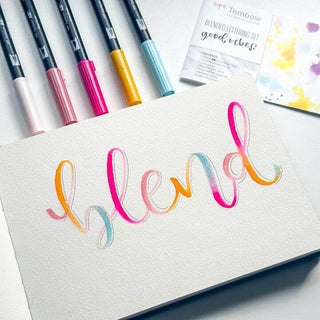 Tombow
BLENDED LETTERING SET
good vibes
blend